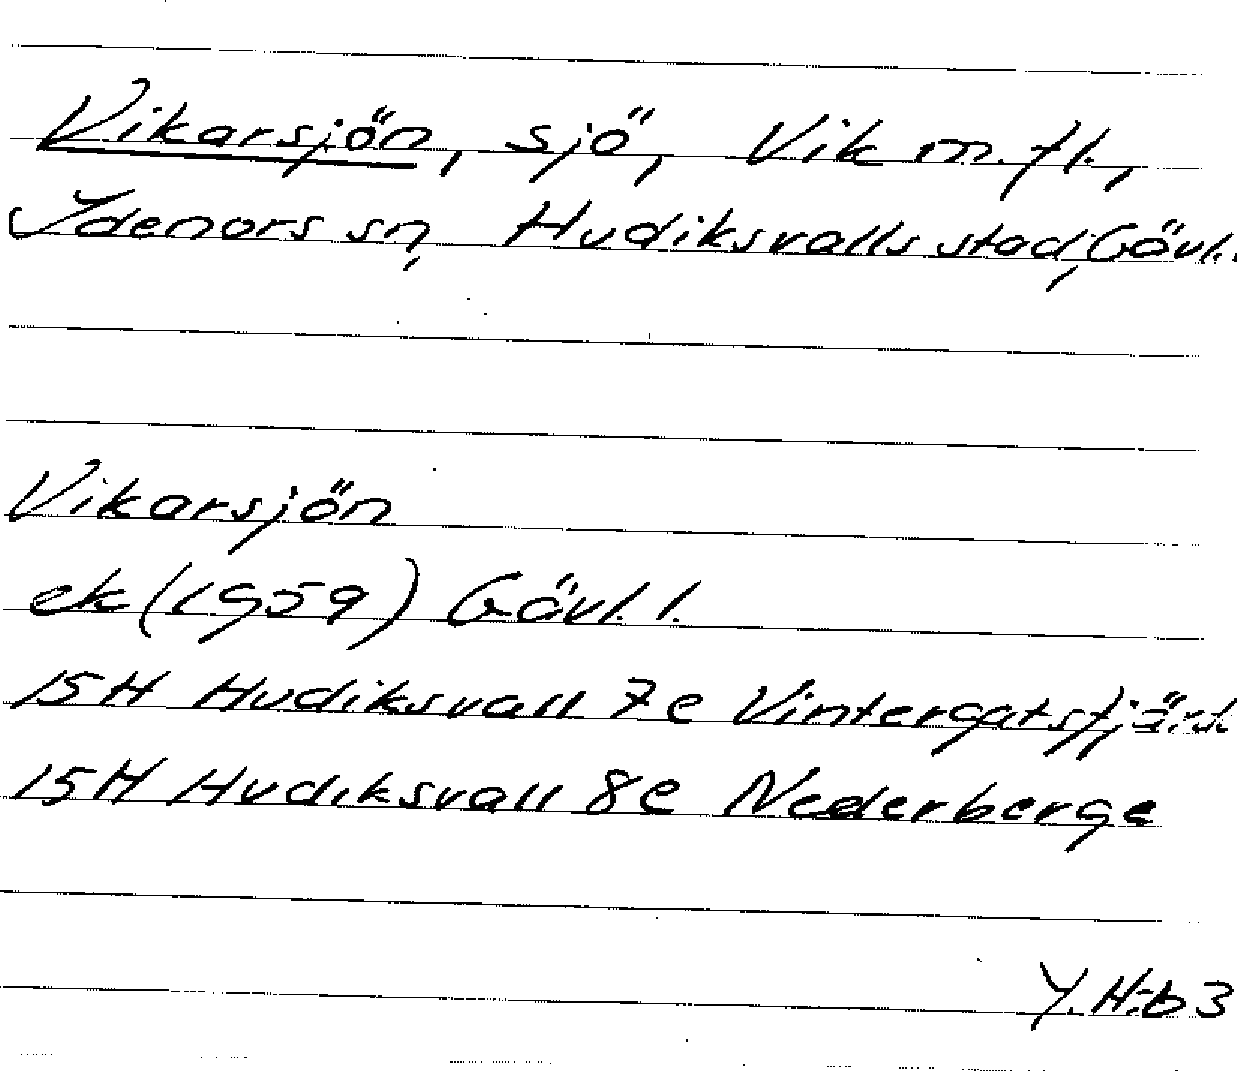 Vikarsjön, sjö, Vik m.fl.,
Idenors sn, Hudiksvalls stad, Gävl.
Vikarsjön
ek (1959) Gävl. l.
15H Hudiksvall 7e Vintergatsfjärd
15H Hudiksvall 8e Nederberge
Y.H:b 3